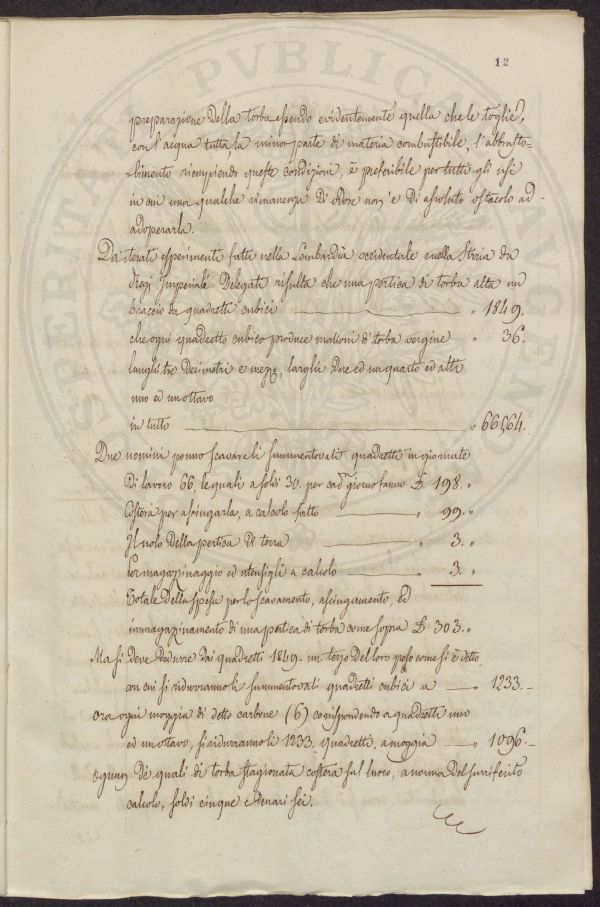 12
preparazione della torba essendo evidentemente quella che le toglie,
con l'acqua tutta la minor parte di materia combustibile, l'abbrusto=
=limento riempiendo queste condizioni, è preferibile per tutti gli usi
in cui una qualche rimanenza di odore non è di assoluto ostacolo ad
adoperarla.
Da iterati esperimenti fatti nella Lombardia occidentale e nella Stiria da
Regi Imperiali Delegati risulta che una pertica di torba alta un
braccio da quadretti cubici " 1849.
che ogni quadretto cubico produce mattoni di torba vergine " 36.
lunghi tre decimetri e mezzo, larghi due ed un quarto ed alti
uno ed un ottavo
in tutto " 66564.
Due uomini ponno scavare li summentovati quadretti in giornate
di lavoro 66, le quali a soldi 30. per cad. giorno fanno £. 198. "
Costerà per asciugarla, a calcolo fatto " 99. "
Il nolo della pertica di terra " 3. "
Per magazzinaggio ed utensigli a calcolo " 3. "
Totale della spesa per lo scavamento, asciugamento, ed
immagazzinamento di una pertica di torba come sopra £. 303. "
Ma si deve dedurre dai quadretti 1849 un terzo del loro peso come si è detto
con cui si ridurranno li summentovati quadretti cubici a " 1233.
Ora ogni moggia di detto carbone (6) corrispondendo a quadretti uno
ed un ottavo, si ridurranno li 1233 quadretti, a moggia " 1096.
ognuno de' quali di torba stagionata costerà sul luoco, a norma del surriferito
calcolo, soldi cinque e denari sei.
PVBLICA